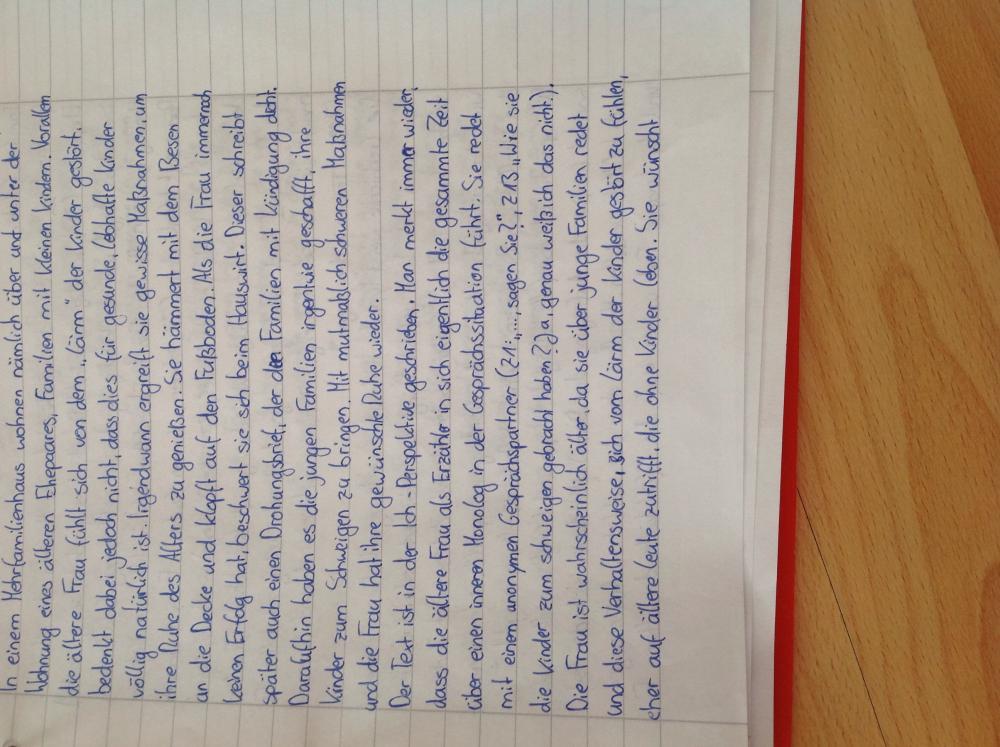 In einem Mehrfamilienhaus wohnen nämlich über und unter der
Wohnung eines älteren Ehepares, Familien mit kleinen Kindern. Vorallem
die ältere Frau fühlt sich von dem „Lärm" der Kinder gestört,
bedenkt dabei jedoch nicht, dass dies für gesunde, lebhafte Kinder
völlig natürlich ist. Irgendwann ergreift sie gewisse Maßnahmen, um
ihre Ruhe des Alters zu genießen. Sie hämmert mit dem Besen
an die Decke und klopft auf den Fußboden. Als die Frau immernoch
keinen Erfolg hat, beschwert sie sich beim Hauswirt. Dieser schreibt
später auch einen Drohungsbrief, der den Familien mit Kündigung droht.
Daraufhin haben es die jungen Familien irgentwie geschafft, ihre
Kinder zum Schweigen zu bringen. Mit mutmaßlich schweren Maßnahmen
und die Frau hat ihre gewünschte Ruhe wieder.
Der Text ist in der Ich-Perspektive geschrieben. Man merkt immer wieder,
dass die ältere Frau als Erzähler in sich eigentlich die gesammte Zeit
über einen inneren Monolog in der Gesprächssituation führt. Sie redet
mit einem anonymen Gesprächspartner (Z1:„..., sagen Sie?", Z13 „Wie sie
die Kinder zum schweigen gebracht haben? Ja, genau weiß ich das nicht.),
Die Frau ist wahrscheinlich älter, da sie über junge Familien redet
und diese Verhaltensweise, sich vom Lärm der Kinder gestört zu fühlen,
eher auf ältere Leute zutrifft, die ohne Kinder leben. Sie wünscht